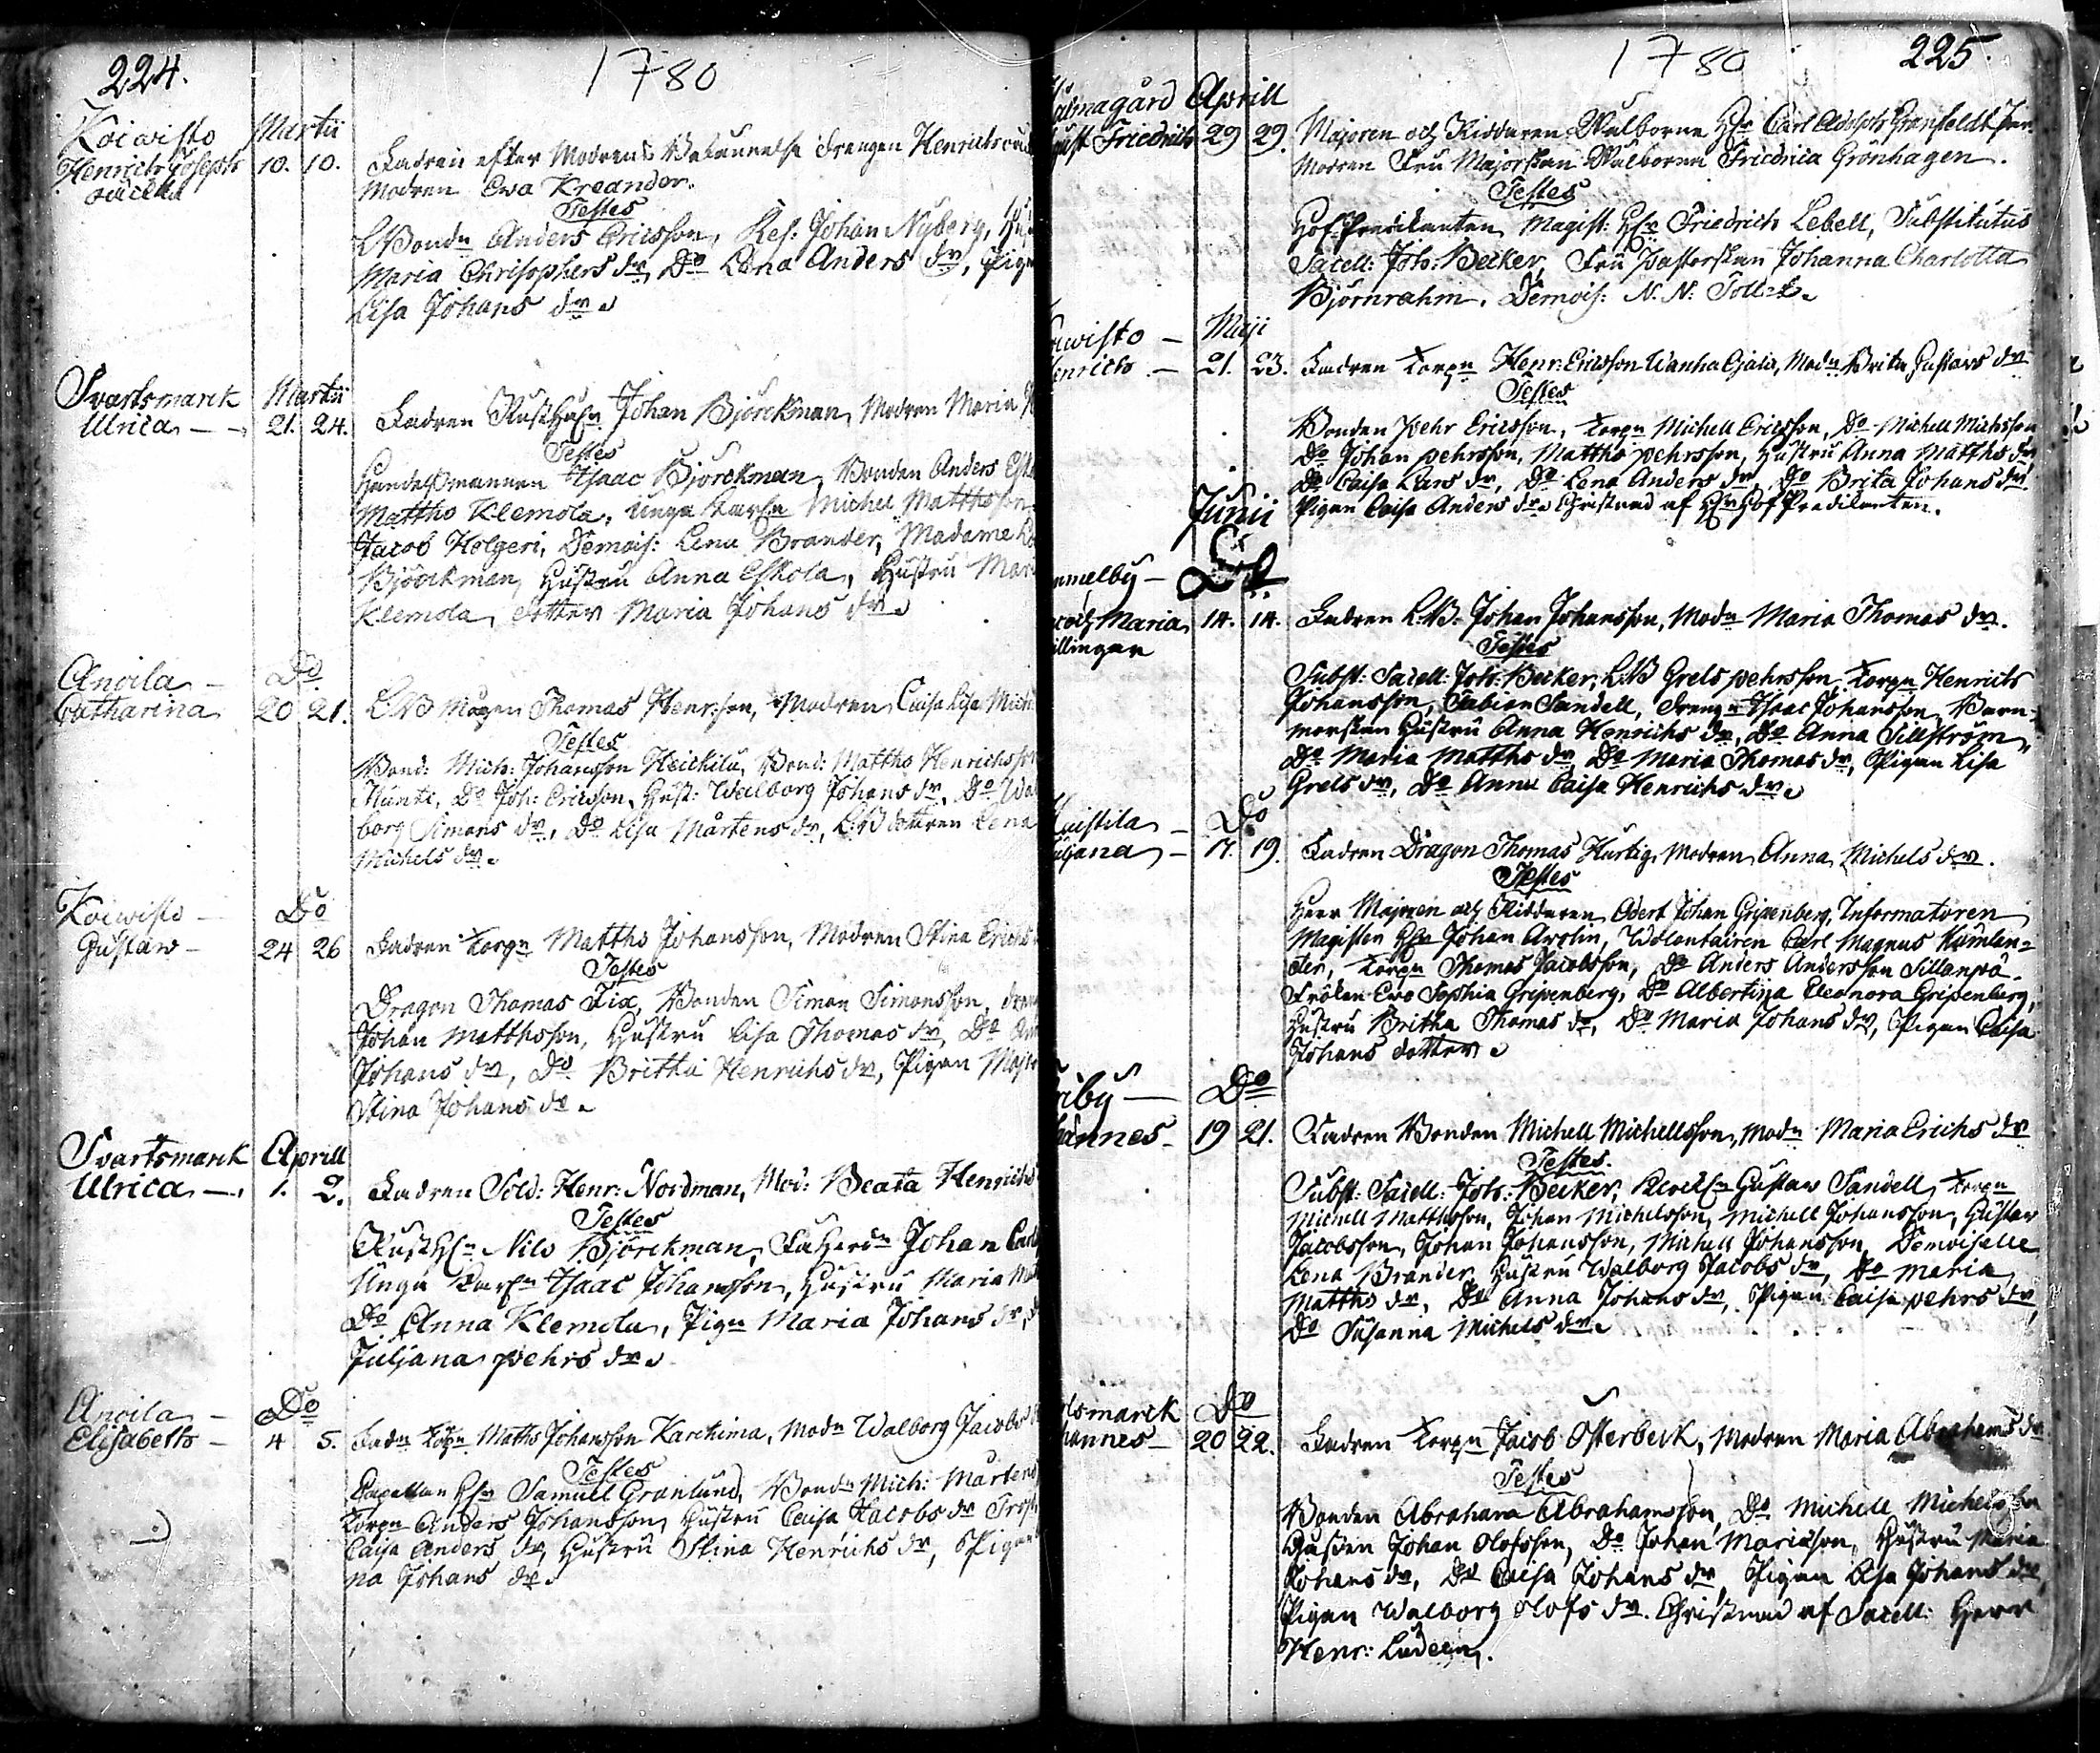 224.
1780
Koiwisto Martii
Henrich Joseph 10. 10. Fadren efter Modrens Bekännelse Drengen Henrich
oäckta Modren Ewa Kreander.
Testes
LBondn Anders Ericsson, Res: Johan Nyberg,
Maria Chrisophers dr, Do Lena Anders dr, Pig
Lisa Johans dr
Svartsmarck Martii
Ulrica — 21. 24. Fadren Johan Björckman, Modren Maria
Testes
Handelsmannen Isaac Björckman, Bonden Anders
Matths Klemola, unga Michel Matthsson
Jacob Holgeri, Demois: Lena Brander, Madame
Björckman, Hustru Anna Eskola, Hustru Mar
Klemola, dotter Maria Johans dr
Anoila — Do
Catharina 20 21. LB Mågen Thomas Henr:son, Modren Caisa Lisa Mich
Testes
Bond: Mich: Johansson Heickilä, Bond: Matths Henrichsson
Do Joh: Ericsson, Hust: Walborg Johans dr, Do Wal
borg Simons dr, Do Lisa Mårtens dr, LB dotteren Lena
Michels dr
Koiwisto — Do
Gustaw — 24 26 Fadren Torpn Matths Johansson, Modren Stina Erichs
Testes
Dragon Thomas Fix, Bonden Simon Simonsson,
Johan Matthsson, Hustru Lisa Thomas dr, Do
Johans dr, Do Britha Henrichs dr, Pigan
Stina Johans dr
Svartsmarck Aprill
Ulrica — 1. 2. Fadren Sold: Henr: Nordman, Mod: Beata Henrichs
Testes
Nils Björckman, Johan
Unga Isaac Johansson, Hustru Maria
Do Anna Klemola, Pign Maria Johans dr,
Juljana pehrs dr
Anoila — Do
Elisabeth — 4 5. Fadn Torpn Maths Johansson Karchima, Modn Walborg Jacobs
Testes
Capellan Hr Samuel Granlund, Bondn Mich: Mårtens
Torpn Anders Johansson, Hustru Caisa Jacobs dr
Caisa Anders dr, Hustru Stina Henrichs dr, Pigan
na Johans dr
1780
225.
lmagård Aprill
Friedrich 29 29. Majoren och Riddaren Wälborne Hr Carl Adolph Granfeldt
Modren Fru Majorskan Wälborna Friedrica Grönhagen.
Testes
Hof Predikanten, Magist: Hr Friedrich Lebell, Substitutus
Sacell: Joh: Becker, Fru Pastorskan Johanna Charlotta
Björnrahm, Demois: N. N:
iwisto — Maji
enrich — 21. 23. Fadren Torpn Henr: Ericsson Wanha, Modn Brita Gustavs dr
Testes
Bonden pehr Ericsson, Torpn Michell Ericsson, Do Michell Michsson
Do Johan pehrsson, Matths pehrsson, Hustru Anna Matths dr
Do Caisa Lars dr, Do Lena Anders dr, Do Brita Johans dr
Pigan Caisa Anders dr Christnad af Hr Hof Predikanten.
Junii
mmelby —
och Maria 14. 14. Fadren LB: Johan Johansson, Modn Maria Thomas dr.
illingar
Testes
Subst: Sacell: Joh: Becker, LB Grels pehrsson Torpn Henrich
Johansson, Fabian Sandell, Drengn Isaac Johansson, Barn-
morskan Hustru Anna Henrichs dr, Do Anna Sillström,
Do Maria Matths dr, Do Maria Thomas dr, Pigan Lisa
Grels dr, Do Anna Caisa Henrichs dr
uistila — Do
uljana — 17. 19. Fadren Dragon Thomas Hurtig, Modren Anna Michels dr.
Testes
Herr Majoren och Riddaren Odert Johan Gripenberg, Informatoren
Magisten Hr Johan Avolin, Wolentairen Carl Magnus Kumlen=
der, Torpn Thomas Jacobsson, Do Anders Andersson Sillanpä
Fröken Ewa Sophia Gripenberg, Do Albertina Eleonora Gripenberg,
Hustru Britha Thomas dr, Do Maria Johans dr, Pigan Caisa
Johans dotter
iby — Do
hannes — 19 21. Fadren Bonden Michell Michellsson, Modn Maria Erichs dr
Testes.
Subst: Sacell: Joh: Becker, Gustaw Sandell, Torpn
Michell Matthsson, Johan Michelsson, Michell Johansson, Gustaw
Jacobsson, Johan Johansson, Michell Johansson, Demoiselle
Lena Brander, Hustru Walborg Jacobs dr, Do Maria
Matths dr, Do Anna Johans dr, Pigan Caisa pehrs dr,
Do Susanna Michels dr
tsmarck Do
hannes — 20 22. Fadren Torpn Jacob Österbeck, Modren Maria Abrahams dr
Testes
Bonden Abraham Abrahamsson, Do Michell Michelsson
Johan Olofsson, Do Johan Mariäson, Hustru Maria
Johans dr, Do Caisa Johans dr, Pigan Lisa Johans dr
Pigan Walborg Olofs dr. Christnad af Sacell: Herr
Henr: Ludeen.